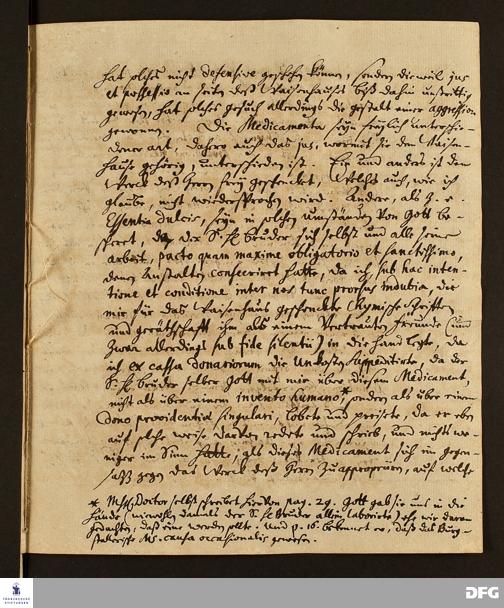 hat solches nicht defensive geschehen können, sondern dieweil jus
et possessio an seiten deß Waisenhauses biß dahin unstreitig
gewesen, hat solches gesuch allerdings die gestalt einer aggression
gewonnen. Die Medicamenta seyn freylich unterschie-
dener art, dahero auch das jus, wormit sie dem Waisen-
hause gehörig, unterschieden ist. Ein und anders ist dem
Werck deß Herrn frey geschencket, welches auch, wie ich
glaube, nicht wiedersprochen wird. Andere, als z. e.
Essentia dulcis, seyn in solchen umständen von Gott be-
scheret, da der S. H. Bruder sich selbst und alle seine
arbeit, pacto quam maxime obligatorio et sanctissimo,
denen Anstalten consecriret hatte, da ich sub hac inten-
tione et conditione inter nos tunc prorsus indubia, die
mir für das Waisenhaus geschenckte Chymische Schriften
und geräthschafft ihm als einem Vertrauten freunde (und
zwar allerdings sub fide silentii) in die Hand legte, da
ich ex cassa donariorum die Unkosten suppeditirte, da der
S. H. bruder selber Gott mit mir über diesem Medicament,
nicht als über einem invento humano,* sondern als über einem
dono providentiae singulari, lobete und preisete, da er eben
auf solche weise darvon redete und schrieb, und nichts we-
niger im Sinn hatte, als dieses Medicament sich im gegen-
satz gegen das Werck deß Herrn zu appropriiren, auf welche
* Doctor selbst schreibet hiervon pag. 29. Gott gab sie uns in die
Hände (wiewohl damals der S. H. Bruder allein laborirte) ehe wir daran
gedachten, daß eine werden solte. Und p. 16. bekennet er, daß das Burg-
stallerische Ms. causa occasionalis gewesen.
FRANCKESCHE STIFTUNGEN
DFG